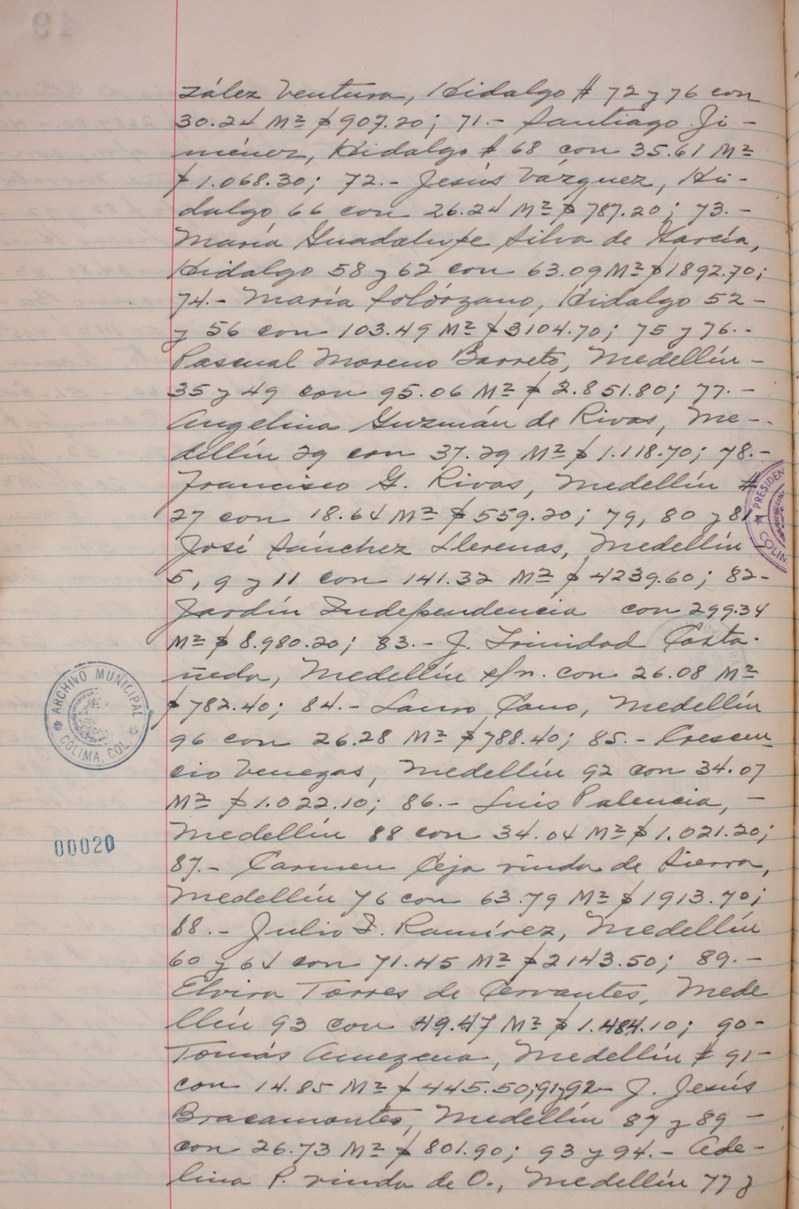 zález Ventura, Hidalgo # 72 y 76 con
30.24 M² $907.20; 71.- Santiago Ji-
ménez, Hidalgo # 68 con 35.61 M²
$1.068.30; 72.- Jesús Vázquez, Hi-
dalgo 66 con 26.24 M² $787.20; 73.-
María Guadalupe Silva de García,
Hidalgo 58 y 62 con 63.09 M² $1892.70;
74.- María Solórzano, Hidalgo 52-
y 56 con 103.49 M² $3104.70; 75 y 76.-
Pascual Moreno Barreto, Medellín-
35 y 49 con 95.06 M² $2.851.80; 77.-
Angelina Guzmán de Rivas, Me-
dellín 29 con 37.29 M² $1.118.70; 78.-
Francisco G. Rivas, Medellín #
27 con 18.64 M² $559.20; 79, 80 y 81
José Sánchez Llerenas, Medellín
5, 9 y 11 con 141.32 M² $4239.60; 82-
Jardín Independencia con 299.34
M² $8.980.20; 83.- J. Trinidad Casta-
ñeda, Medellín s/n. con 26.08 M²
$782.40; 84.- Lauro Cano, Medellín
96 con 26.28 M² $788.40; 85.- Crescen-
cio Venegas, Medellín 92 con 34.07
M² $1.022.10; 86.- Luis Palencia, -
Medellín 88 con 34.04 M² $1.021.20;
87.- Carmen Ceja viuda de Sierra,
Medellín 76 con 63.79 M² $1913.70;
88.- Julio I. Ramírez, Medellín
60 y 64 con 71.45 M² $2143.50; 89.-
Elvira Torres de Cervantes, Mede
llín 93 con 49.47 M² $1.484.10; 90-
Tomás Amezcua, Medellín # 91-
con 14.85 M² $445.50; 91 y 92- J. Jesús
Bracamontes, Medellín 87 y 89-
con 26.73 M² $801.90; 93 y 94.- Ade-
lina P. viuda de O., Medellín 77 y
ARCHIVO MUNICIPAL
COLIMA, COL.
00020
PRESIDEN
COLIM